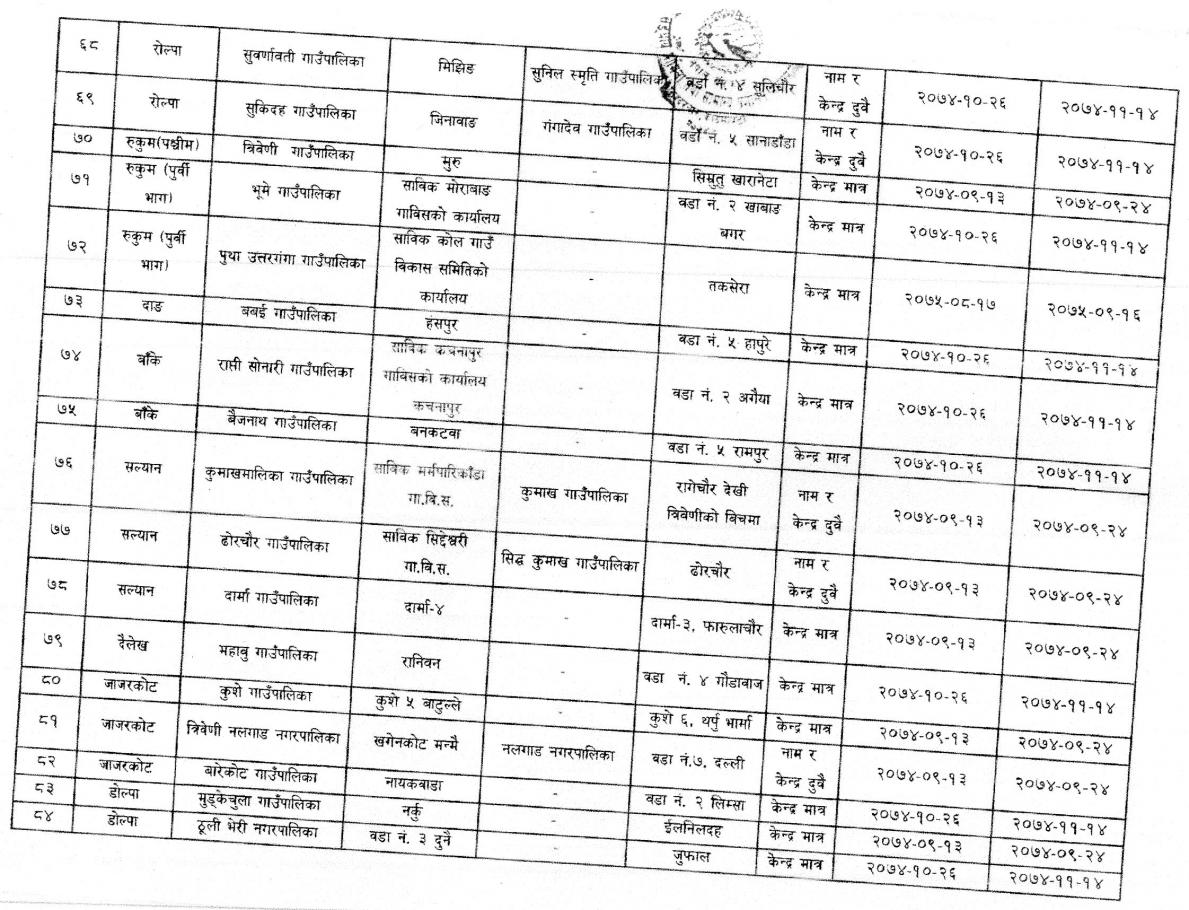 ६८ रोल्पा सुवर्णावती गाउँपालिका मिझिङ सुनिल स्मृति गाउँपालिका वडा नं. ४ सुलिचौर नाम र केन्द्र दुवै २०७४-१०-२६ २०७४-११-१४
६९ रोल्पा सुकिदह गाउँपालिका जिनावाङ गंगादेव गाउँपालिका वडा नं. ५ सानाडाँडा नाम र केन्द्र दुवै २०७४-१०-२६ २०७४-११-१४
७० रुकुम(पश्चीम) त्रिवेणी गाउँपालिका मुरु - सिम्रुतु खारानेटा केन्द्र मात्र २०७४-०९-१३ २०७४-०९-२४
७१ रुकुम (पुर्वी भाग) भूमे गाउँपालिका साविक मोराबाङ गाविसको कार्यालय - वडा नं. २ खाबाङ बगर केन्द्र मात्र २०७४-१०-२६ २०७४-११-१४
७२ रुकुम (पुर्वी भाग) पुथा उत्तरगंगा गाउँपालिका साविक कोल गाउँ विकास समितिको कार्यालय - तकसेरा केन्द्र मात्र २०७५-०८-१७ २०७५-०९-१६
७३ दाङ बबई गाउँपालिका हंसपुर - वडा नं. ५ हापुरे केन्द्र मात्र २०७४-१०-२६ २०७४-११-१४
७४ बाँके राप्ती सोनारी गाउँपालिका साविक कचनापुर गाविसको कार्यालय कचनापुर - वडा नं. २ अगैया केन्द्र मात्र २०७४-१०-२६ २०७४-११-१४
७५ बाँके बैजनाथ गाउँपालिका बनकटवा - वडा नं. ५ रामपुर केन्द्र मात्र २०७४-१०-२६ २०७४-११-१४
७६ सल्यान कुमाखमालिका गाउँपालिका साविक मर्मपारिकाँडा गा.वि.स. कुमाख गाउँपालिका रागेचौर देखी त्रिवेणीको बिचमा नाम र केन्द्र दुवै २०७४-०९-१३ २०७४-०९-२४
७७ सल्यान ढोरचौर गाउँपालिका साविक सिद्देश्वरी गा.वि.स. सिद्ध कुमाख गाउँपालिका ढोरचौर नाम र केन्द्र दुवै २०७४-०९-१३ २०७४-०९-२४
७८ सल्यान दार्मा गाउँपालिका दार्मा-४ - दार्मा-३, फारुलाचौर केन्द्र मात्र २०७४-०९-१३ २०७४-०९-२४
७९ दैलेख महाबु गाउँपालिका रानिवन - वडा नं. ४ गौडाबाज केन्द्र मात्र २०७४-१०-२६ २०७४-११-१४
८० जाजरकोट कुशे गाउँपालिका कुशे ५ बाटुल्ले - कुशे ६, थर्पु भार्मा केन्द्र मात्र २०७४-०९-१३ २०७४-०९-२४
८१ जाजरकोट त्रिवेणी नलगाड नगरपालिका खगेनकोट मन्मै नलगाड नगरपालिका वडा नं.७, दल्ली नाम र केन्द्र दुवै २०७४-०९-१३ २०७४-०९-२४
८२ जाजरकोट बारेकोट गाउँपालिका नायकबाडा - वडा नं. २ लिम्सा केन्द्र मात्र २०७४-१०-२६ २०७४-११-१४
८३ डोल्पा मुड्केचुला गाउँपालिका नर्कु - ईलनिलदह केन्द्र मात्र २०७४-०९-१३ २०७४-०९-२४
८४ डोल्पा ठूली भेरी नगरपालिका वडा नं. ३ दुनै - जुफाल केन्द्र मात्र २०७४-१०-२६ २०७४-११-१४